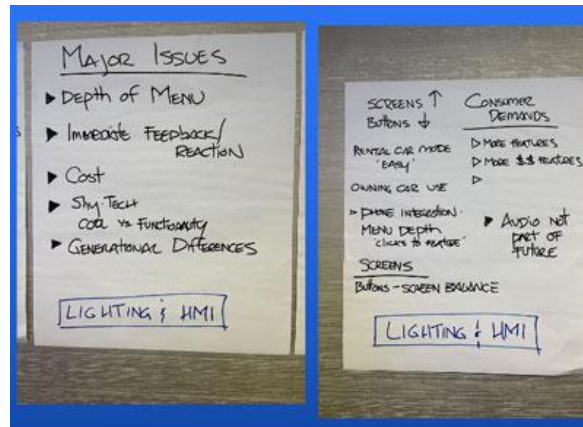 MAJOR ISSUES
▶ Depth of MENU
▶ Immediate Feedback/
REACTION
▶ Cost
▶ Shy-Tech
COOL vs FUNCTIONALITY
▶ GENERATIONAL DIFFERENCES
LIGHTING & HMI
SCREENS ↑
Buttons ↓
RENTAL CAR MODE
"EASY"
OWNING CAR USE
▷ PHONE INTEGRATION
MENU DEPTH
"clicks to feature"
SCREENS
Buttons - SCREEN BALANCE
CONSUMER
DEMANDS
▷ MORE FEATURES
▷ MORE $$ FEATURES
▷
▶ AUDIO NOT
PART OF
FUTURE
LIGHTING & HMI